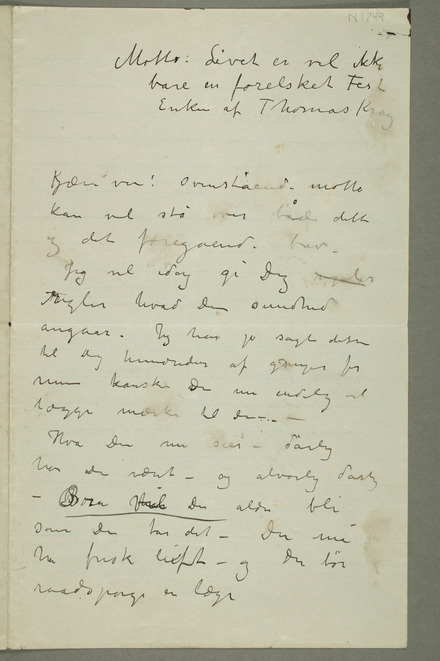 N 1849
Motto: Livet er vel ikke
bare en forelsket Fest
Enken af Thomas Krag
Kjære ven! ovenstående motto
kan vel stå over både dette
og det foregående brev.
Jeg vil idag gi Dig
regler hvad Din sundhed
angaar. Jeg har jo sagt dette
til dig hundreder af ganger før
men kanske Du nu endelig vil
lægge mærke til det. –
Hva Du nu sier – dårlig
har du været – og alvorlig dårlig
– Bra Du aldri bli
som Du har det – Du må
ha frisk luft – og Du bør
raadspørge en læge